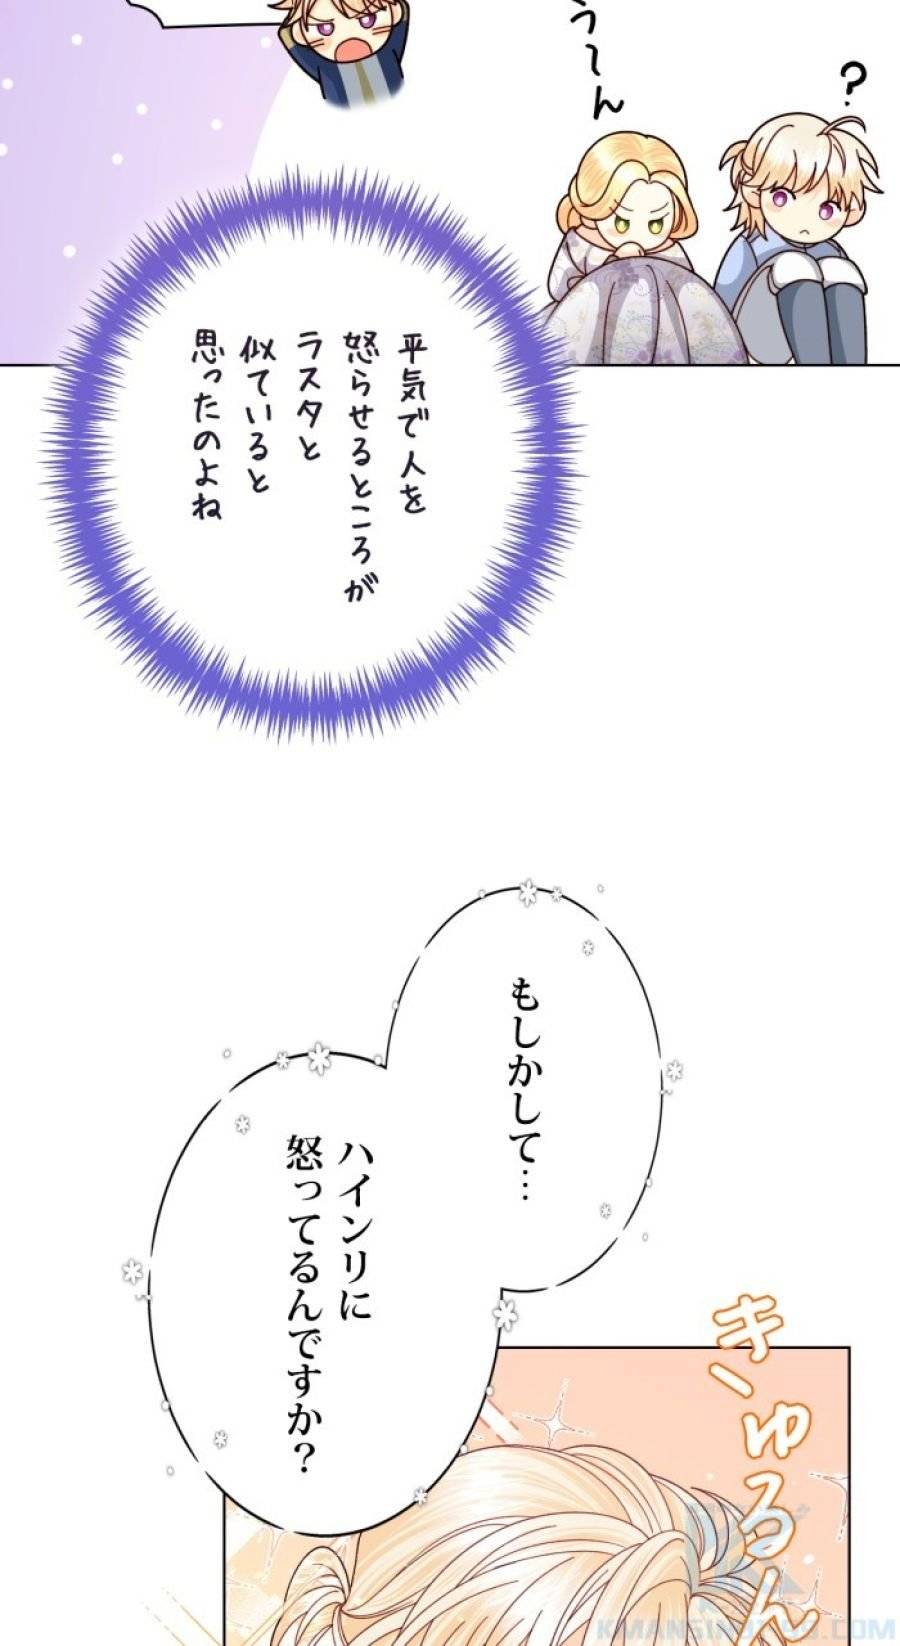 う〜ん
?
平気で人を
怒らせるところが
ラスタと
似ていると
思ったのよね
もしかして…
ハインリに
怒ってるんですか?
きゅるん